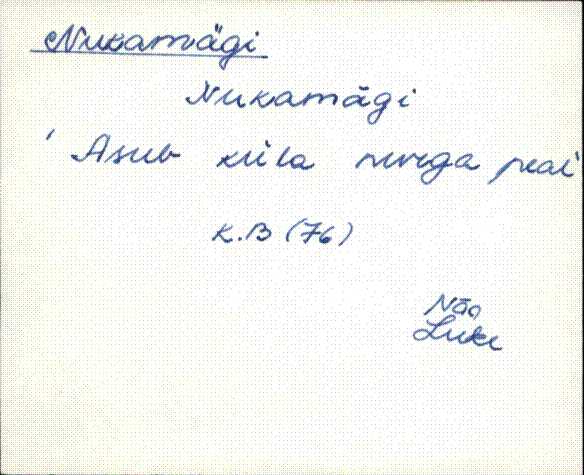 Nukamägi
Nukamägi
' Asub küla nurga peal
K.B (76)
Nõo
Luke